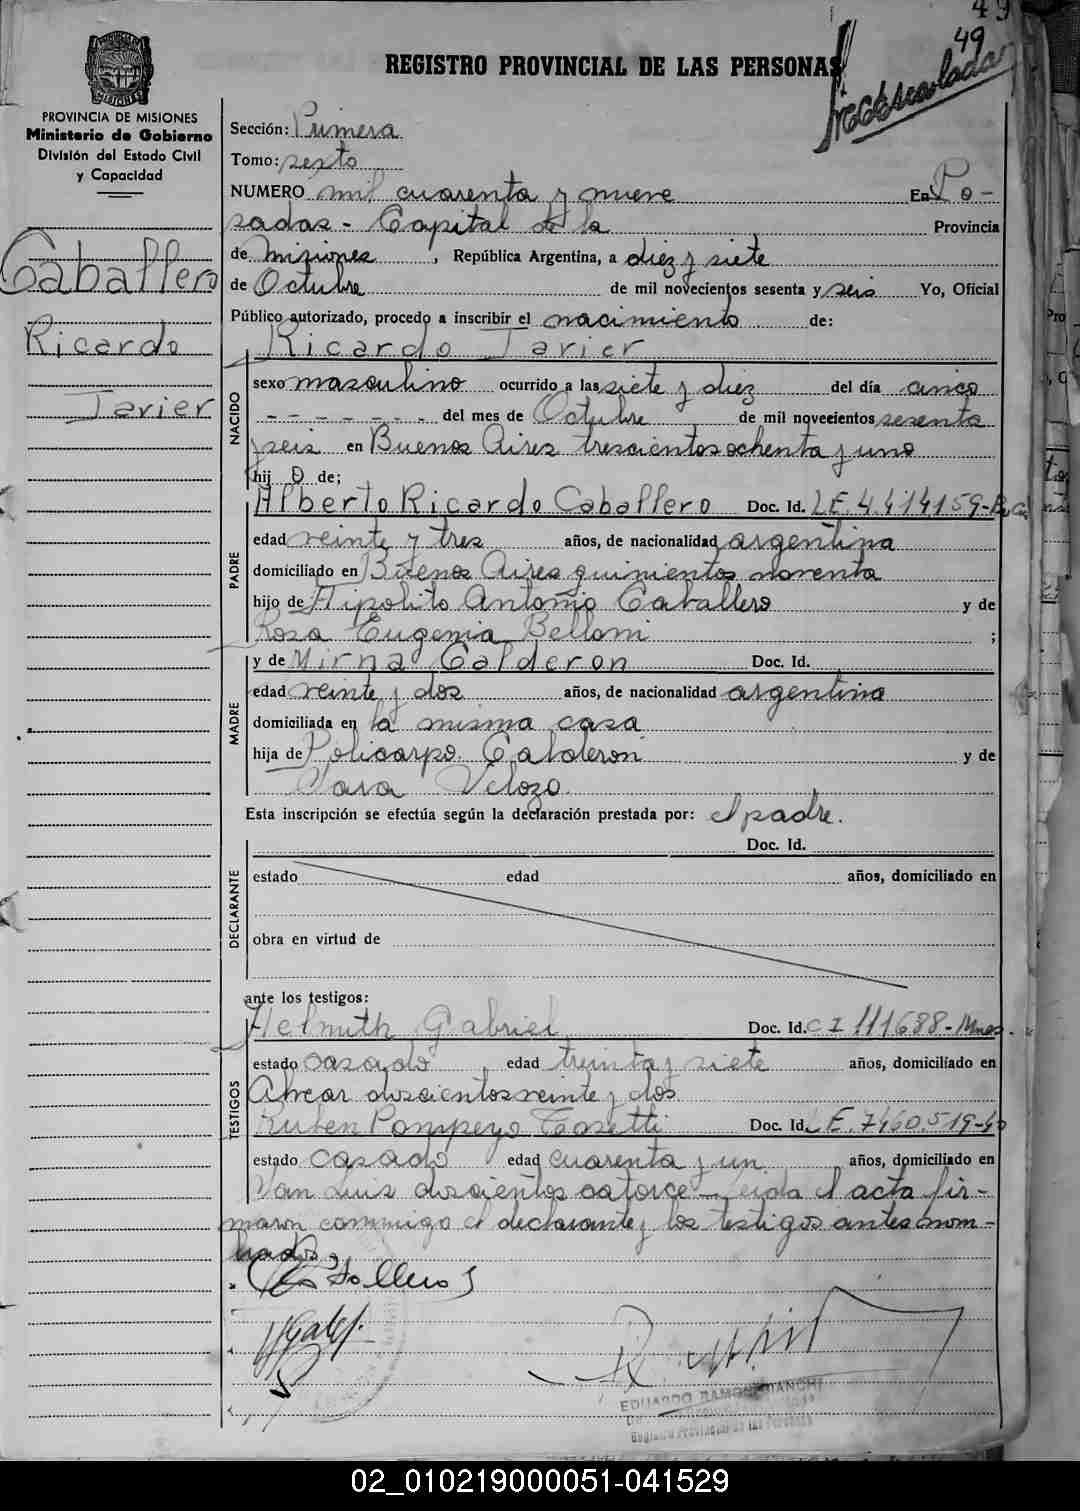 49
49
REGISTRO PROVINCIAL DE LAS PERSONAS
PROVINCIA DE MISIONES
Ministerio de Gobierno
División del Estado Civil
y Capacidad
Caballero
Ricardo
Javier
Sección: Primera
Tomo: sexto
NUMERO mil cuarenta y nueve En Po-
sadas - Capital de la Provincia
de Misiones, República Argentina, a diez y siete
de Octubre de mil novecientos sesenta y seis Yo, Oficial
Público autorizado, procedo a inscribir el nacimiento de:
Ricardo Javier
NACIDO
sexo masculino ocurrido a las siete y diez del día cinco
- - - - - - - del mes de Octubre de mil novecientos sesenta
y seis en Buenos Aires trescientos ochenta y uno
hij o de;
PADRE
Alberto Ricardo Caballero Doc. Id. L.E. 4.414159-
edad veinte y tres años, de nacionalidad argentina
domiciliado en Buenos Aires quinientos noventa
hijo de Hipolito Antonio Caballero y de
Rosa Eugenia Belloni ;
MADRE
y de Mirna Calderon Doc. Id.
edad veinte y dos años, de nacionalidad argentina
domiciliada en la misma casa
hija de Policarpo Calderon y de
Sara Velozo
Esta inscripción se efectúa según la declaración prestada por: el padre.
DECLARANTE
Doc. Id.
estado edad años, domiciliado en
obra en virtud de
ante los testigos:
TESTIGOS
Helmuth Gabriel Doc. Id. C I 111688-Mnes.
estado casado edad treinta y siete años, domiciliado en
Alvear doscientos veinte y dos
Ruben Pompeyo Tosetti Doc. Id. L.E. 7460519-
estado casado edad cuarenta y un años, domiciliado en
San Luis doscientos catorce - Leida el acta fir-
maron conmigo el declarante y los testigos antes nom-
brados.
EDUARDO RAMON BIANCHI
Registro Provincial de las Personas
02_010219000051-041529